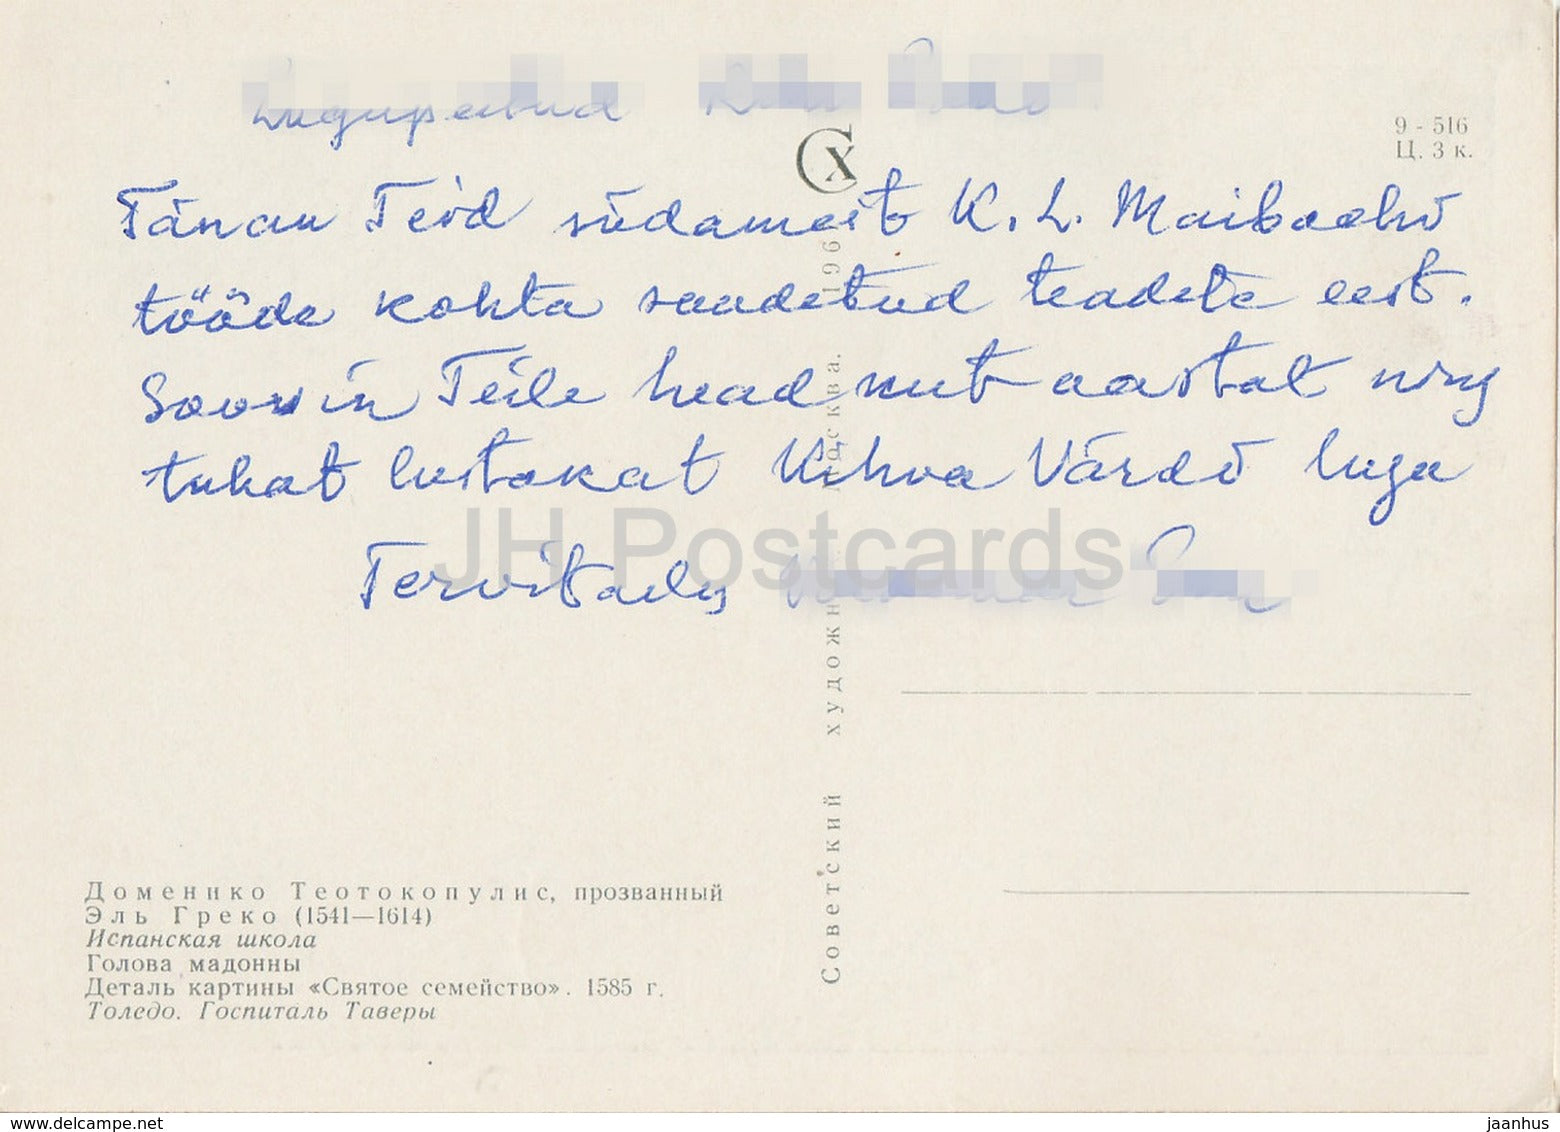 Lugupeetud
9 - 516
Ц. 3 к.
Tänan Teid südamest K. L. Maibachi
tööde kohta saadetud teadete eest.
Soovin Teile head uut aastat ning
tuhat lustakat Kihva Värdi lugu
Tervitades
JH Postcards
Доменико Теотокопулис, прозванный
Эль Греко (1541—1614)
Испанская школа
Голова мадонны
Деталь картины «Святое семейство». 1585 г.
Толедо. Госпиталь Таверы
Советский художник. Москва. 196
www.delcampe.net
jaanhus